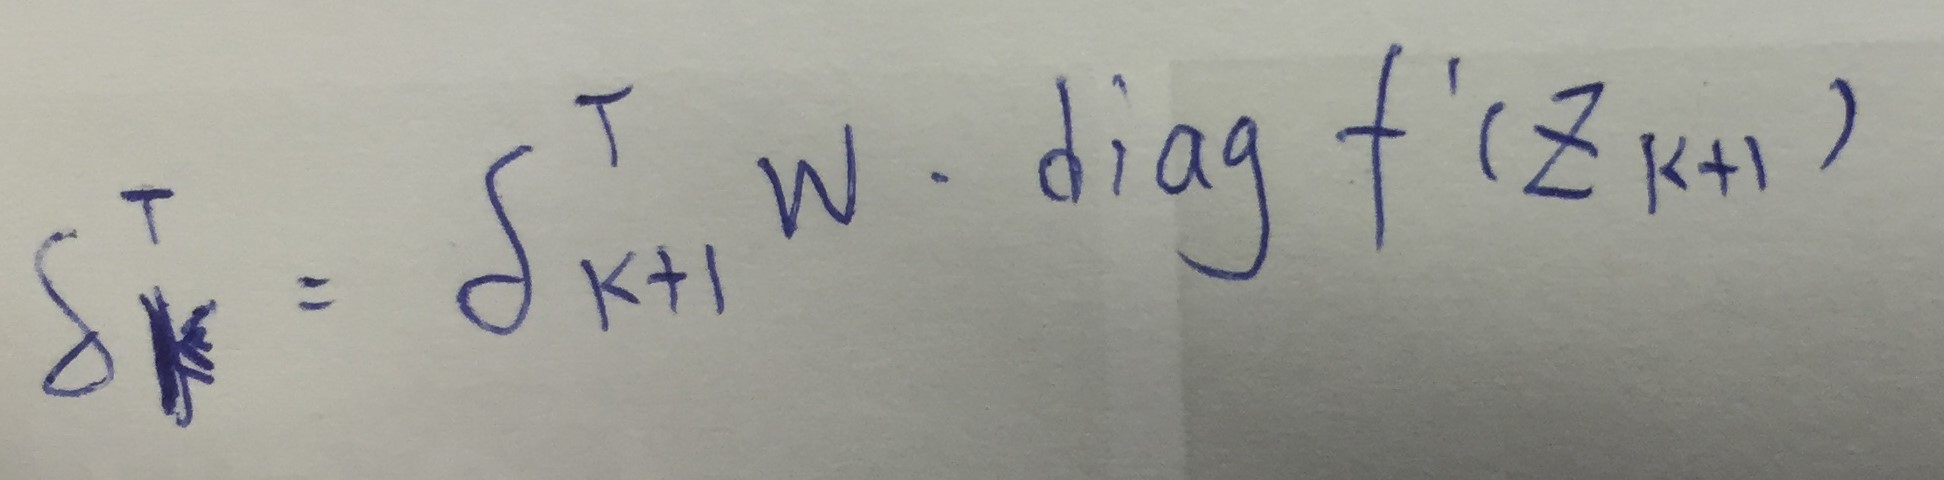 δ_k^T = δ_{k+1}^T W · diag f'(z_{k+1})